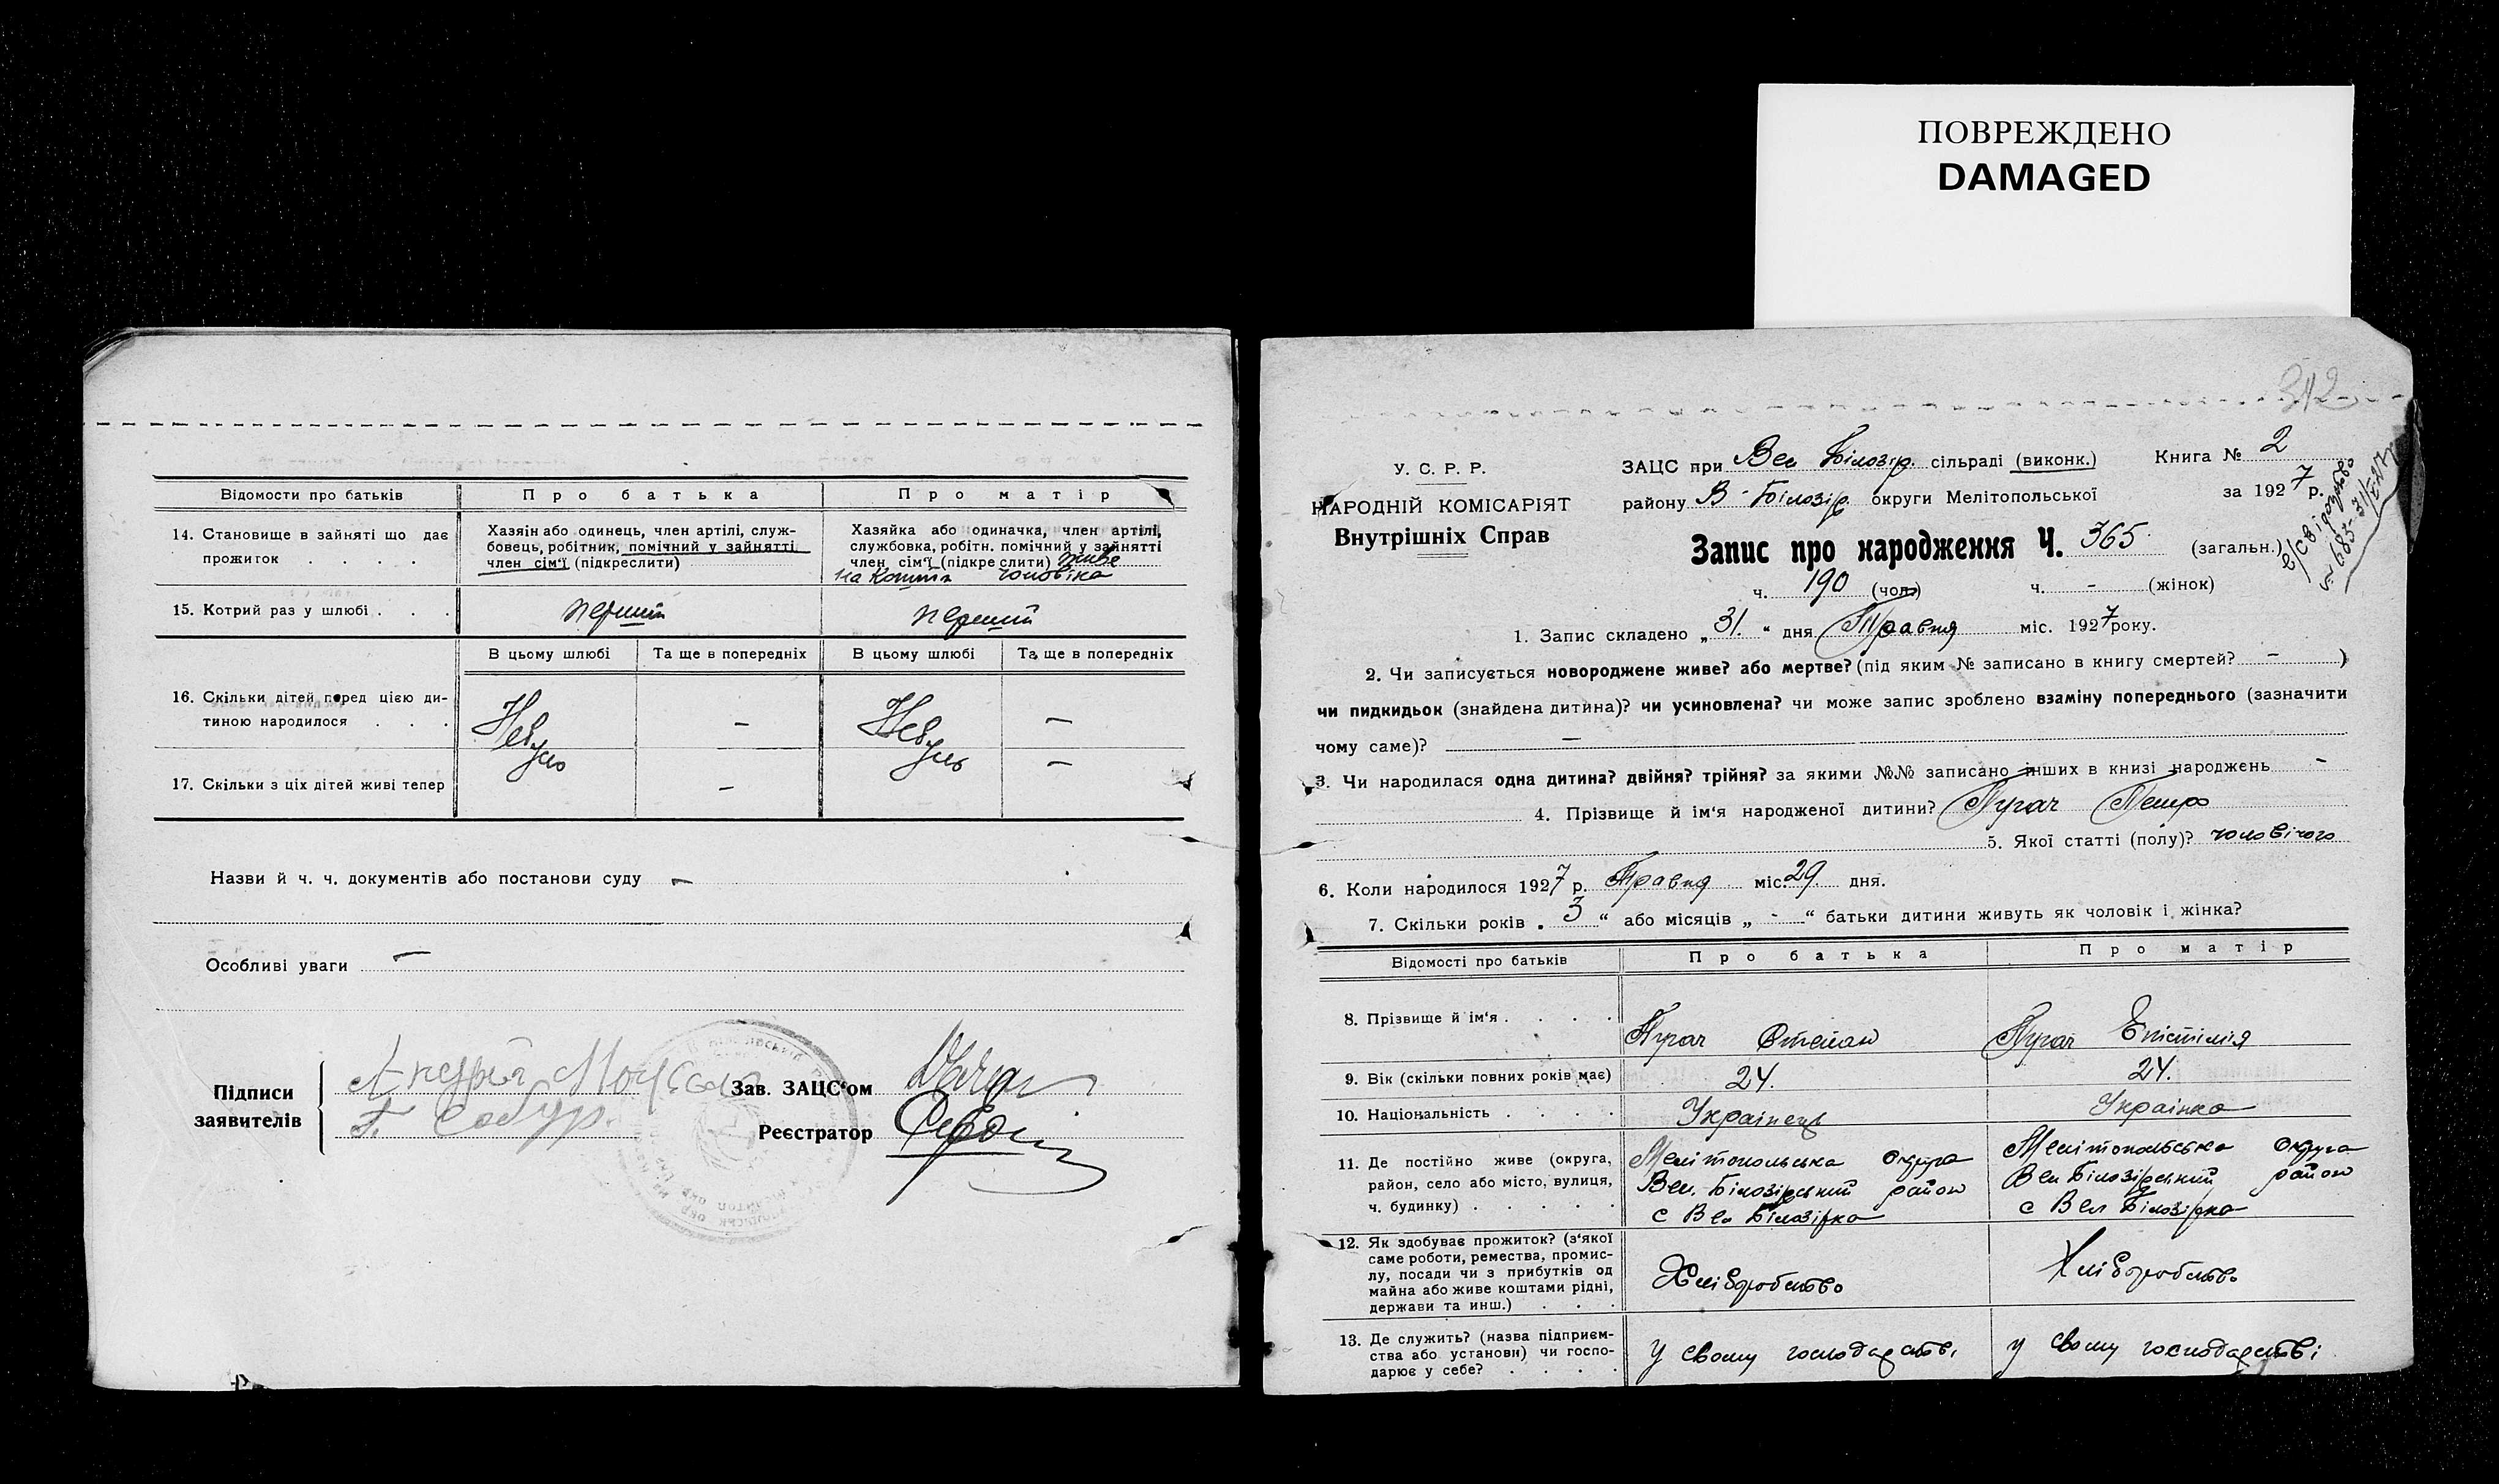 ПОВРЕЖДЕНО
DAMAGED
Відомости про батьків
Про батька
Про матір
14. Становище в зайняті що дає
прожиток . . . .
Хазяін або одинець, член артілі, служ-
бовець, робітник, помічний у зайнятті
член сім'ї (підкреслити)
Хазяйка або одиначка, член артілі,
службовка, робітн. помічний у зайнятті
член сім'ї (підкреслити) живе
на кошти чоловіка
15. Котрий раз у шлюбі . . .
перший
перший
В цьому шлюбі
Та ще в попередніх
В цьому шлюбі
Та ще в попередніх
16. Скільки дітей перед цією ди-
тиною народилося . . .
—
—
17. Скільки з ціх дітей живі тепер
—
—
Назви й ч. ч. документів або постанови суду —
Особливі уваги —
Підписи
заявителів
Андрій
Зав. ЗАЦС'ом
Реєстратор
312
У. С. Р. Р.
НАРОДНІЙ КОМІСАРІЯТ
Внутрішніх Справ
ЗАЦС при Вел Білозір. сільраді (виконк.)
Книга № 2
району В-Білозір. округи Мелітопольської
за 1927 р.
Запис про народження Ч. 365 (загальн.)
ч. 190 (чол.) ч. - (жінок)
1. Запис складено „31." дня Травня міс. 1927 року.
2. Чи записується новороджене живе? або мертве? (під яким № записано в книгу смертей? — )
чи пидкидьок (знайдена дитина)? чи усиновлена? чи може запис зроблено взаміну попереднього (зазначити
чому саме)? —
3. Чи народилася одна дитина? двійня? трійня? за якими №№ записано інших в книзі народжень -
4. Прізвище й ім'я народженої дитини? Пугач Петро
5. Якої статті (полу)? чоловічого
6. Коли народилось 1927 р. Травня міс. 29 дня.
7. Скільки років „ 3 " або місяців „ - " батьки дитини живуть як чоловік і жінка?
Відомості про батьків
Про батька
Про матір
8. Прізвище й ім'я . . . .
Пугач Степан
Пугач Епістімія
9. Вік (скільки повних років має)
24.
24.
10. Національність . . . .
Українець
Українка
11. Де постійно живе (округа,
район, село або місто, вулиця,
ч. будинку) . . . . .
Мелітопольська округа
Вел. Білозірський район
с Вел Білозірка
Мелітопольська округа
Вел Білозірський район
с Вел Білозірка
12. Як здобуває прожиток? (з'якої
саме роботи, ремества, промис-
лу, посади чи з прибутків од
майна або живе коштами рідні,
держави та инш.) . . .
Хліборобство
Хліборобство
13. Де служить? (назва підприєм-
ства або установи) чи госпо-
дарює у себе? . . . .
у свому господарстві
у свому господарстві